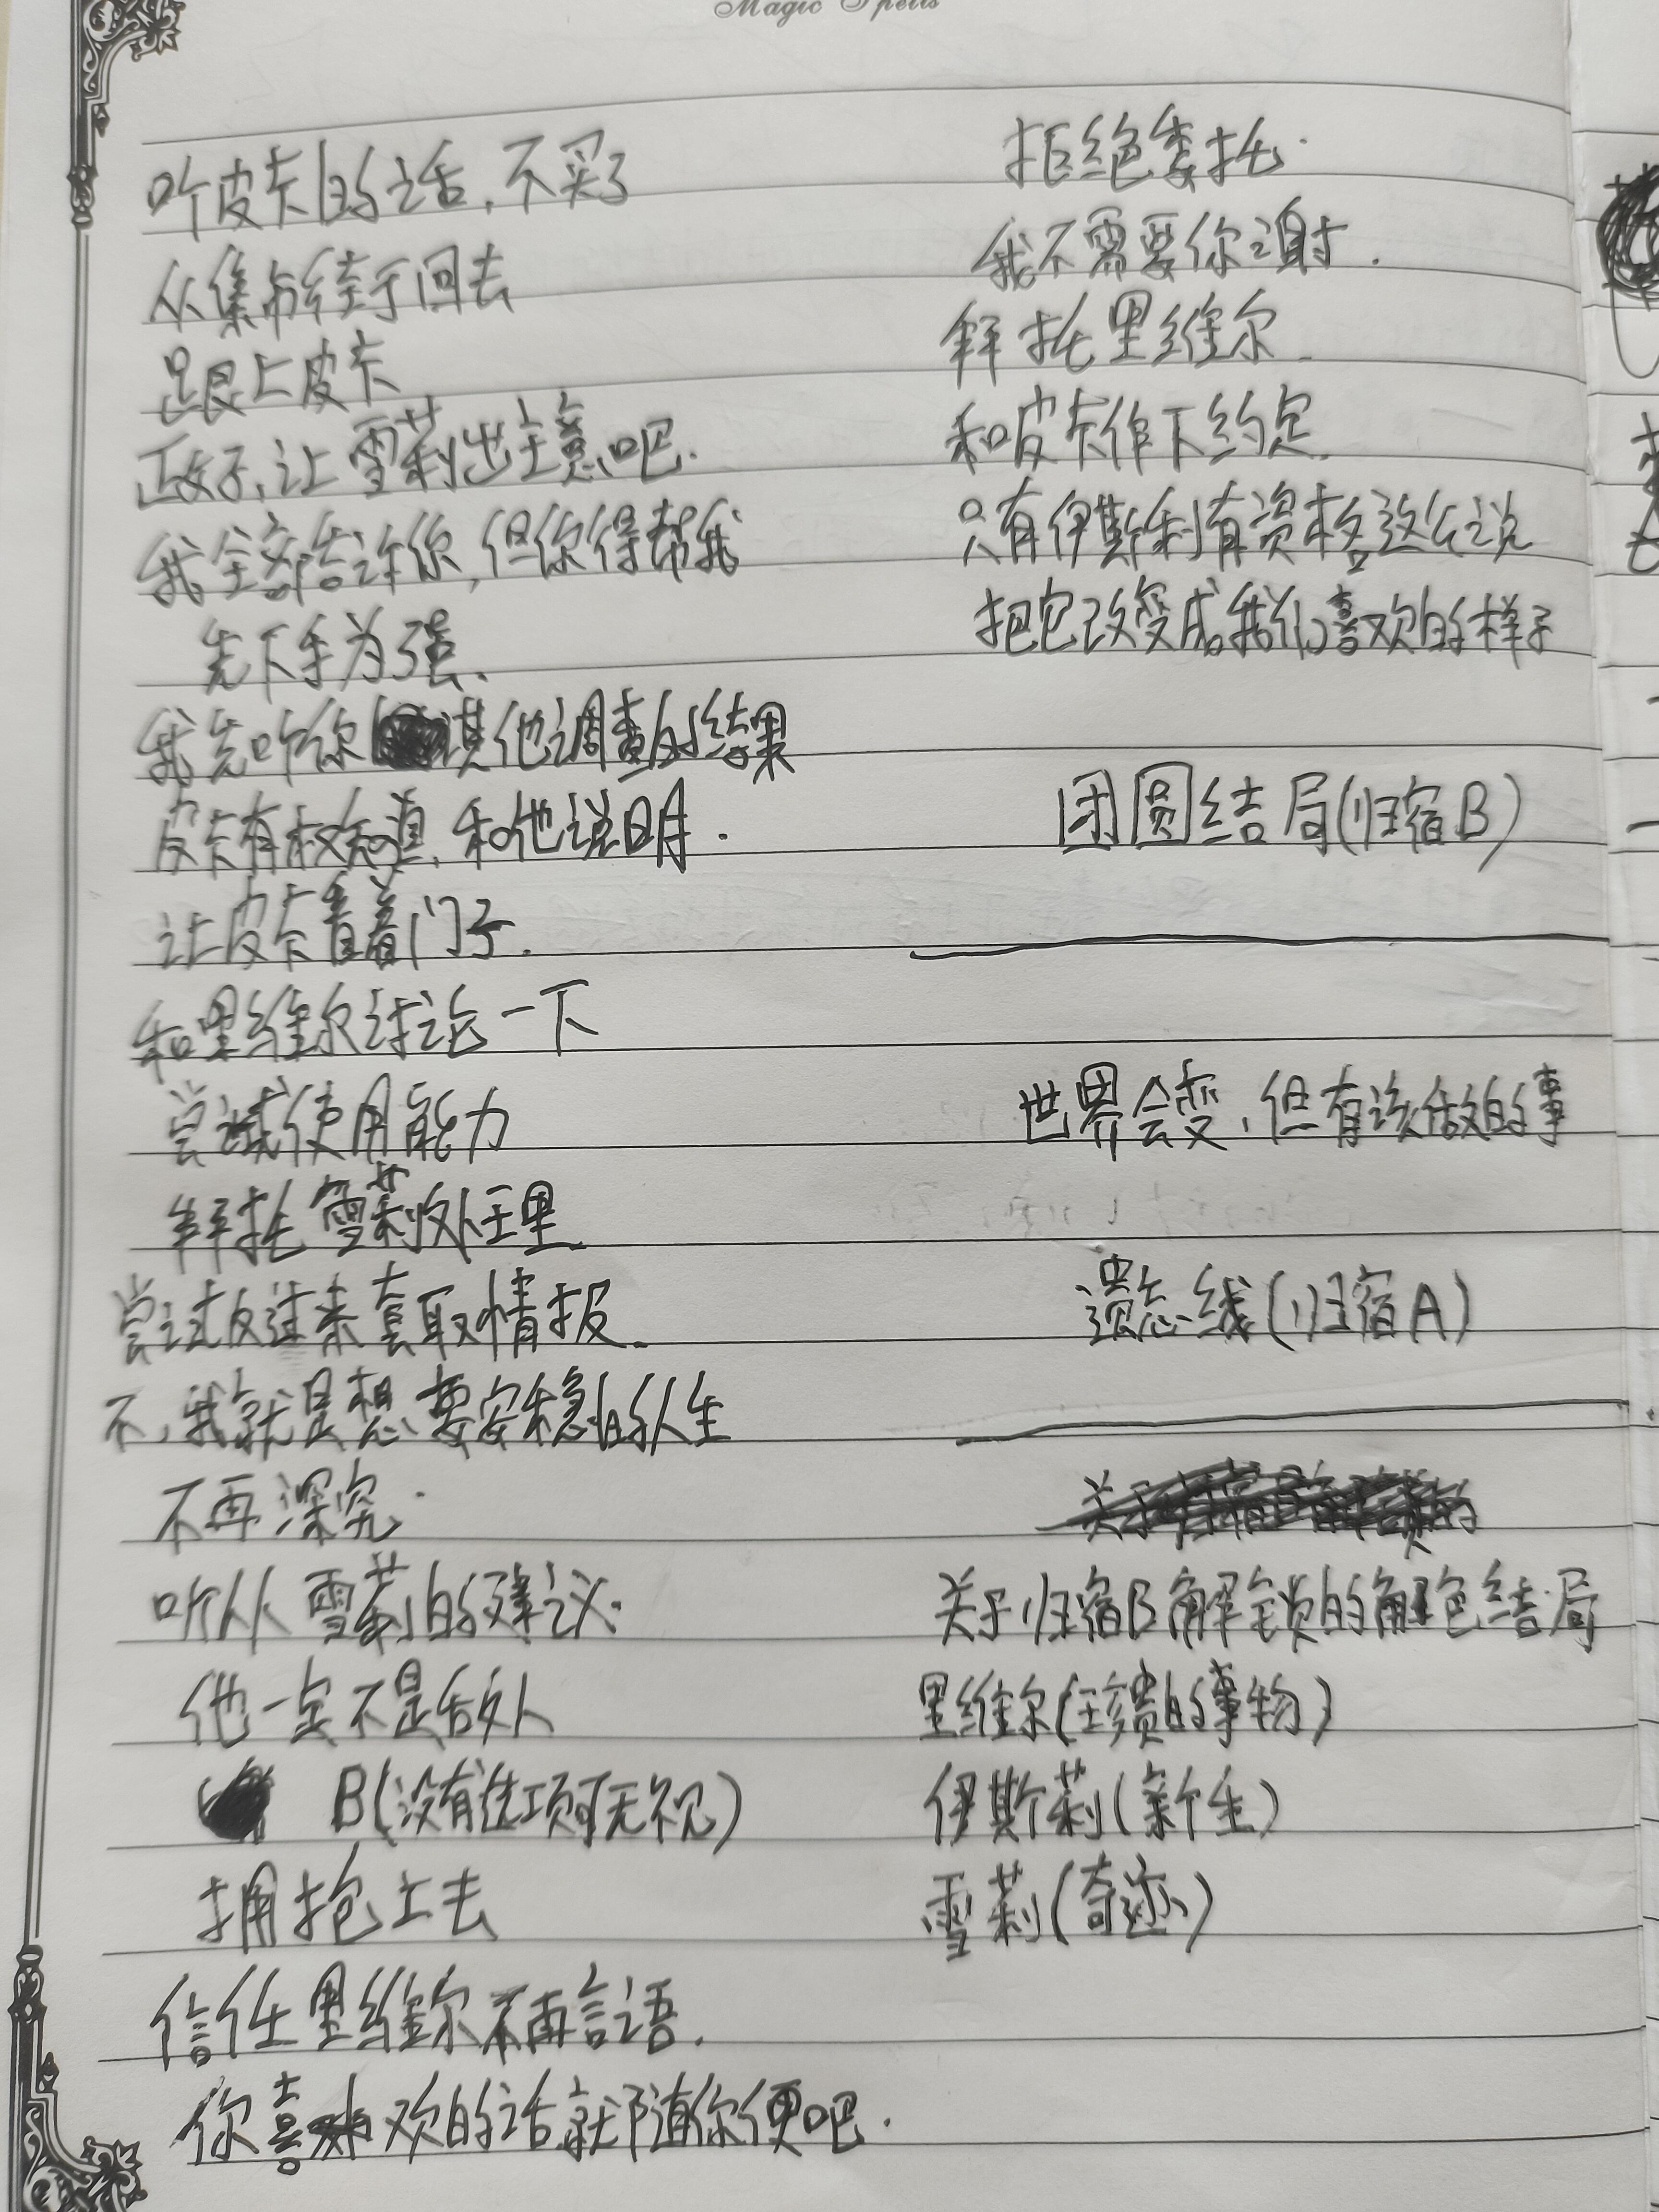 Magic Spells
听皮卡的话,不买了
从集市绕于回去
跟上皮卡
正好,让雪莉出主意吧.
我全部告诉你,但你得帮我
先下手为强.
我先听你其他调查的结果
皮卡有权知道,和他说明.
让皮卡看着门子.
和里维尔讨论一下
尝试使用能力
拜托雪莉处理
尝试反过来套取情报.
不,我就是想要安稳的人生
不再深究.
听从雪莉的建议.
他一定不是敌人
B(没有选项可无视)
拥抱上去
信任里维尔不再言语.
你喜欢的话就随你便吧.
拒绝委托.
我不需要你谢.
拜托里维尔.
和皮卡作下约定.
只有伊斯利有资格这么说
把它改变成我们喜欢的样子
团圆结局(归宿B)
世界会变,但有该做的事
遗忘线(归宿A)
关于归宿B解锁的角色结局
里维尔(珍贵的事物)
伊斯莉(新生)
雪莉(奇迹)